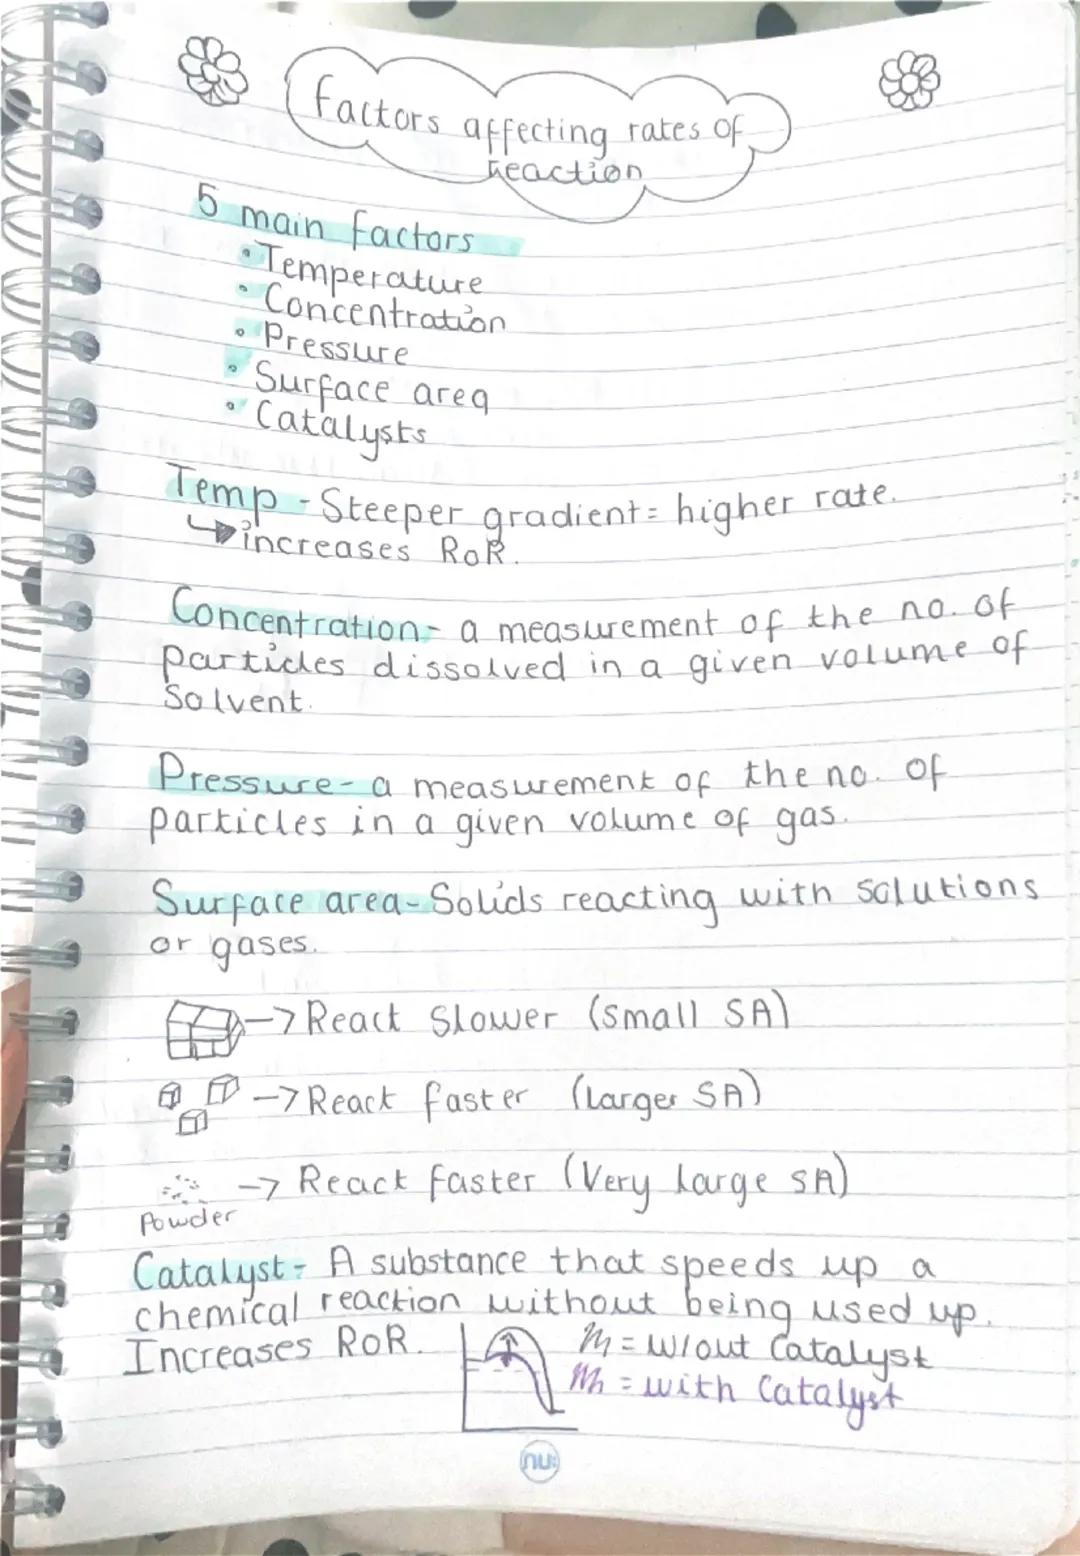 Factors affecting rates of
reaction
5 main factors
• Temperature
• Concentration
• Pressure
• Surface area
• Catalysts
Temp - Steeper gradient = higher rate.
↳ increases RoR.
Concentration - a measurement of the no. of
particles dissolved in a given volume of
Solvent.
Pressure - a measurement of the no. of
particles in a given volume of gas.
Surface area - Solids reacting with solutions
or gases.
→ React Slower (small SA)
→ React faster (larger SA)
→ React faster (Very large SA)
Powder
Catalyst - A substance that speeds up a
chemical reaction without being used up.
Increases RoR.
= w/out Catalyst
= with Catalyst
nu: